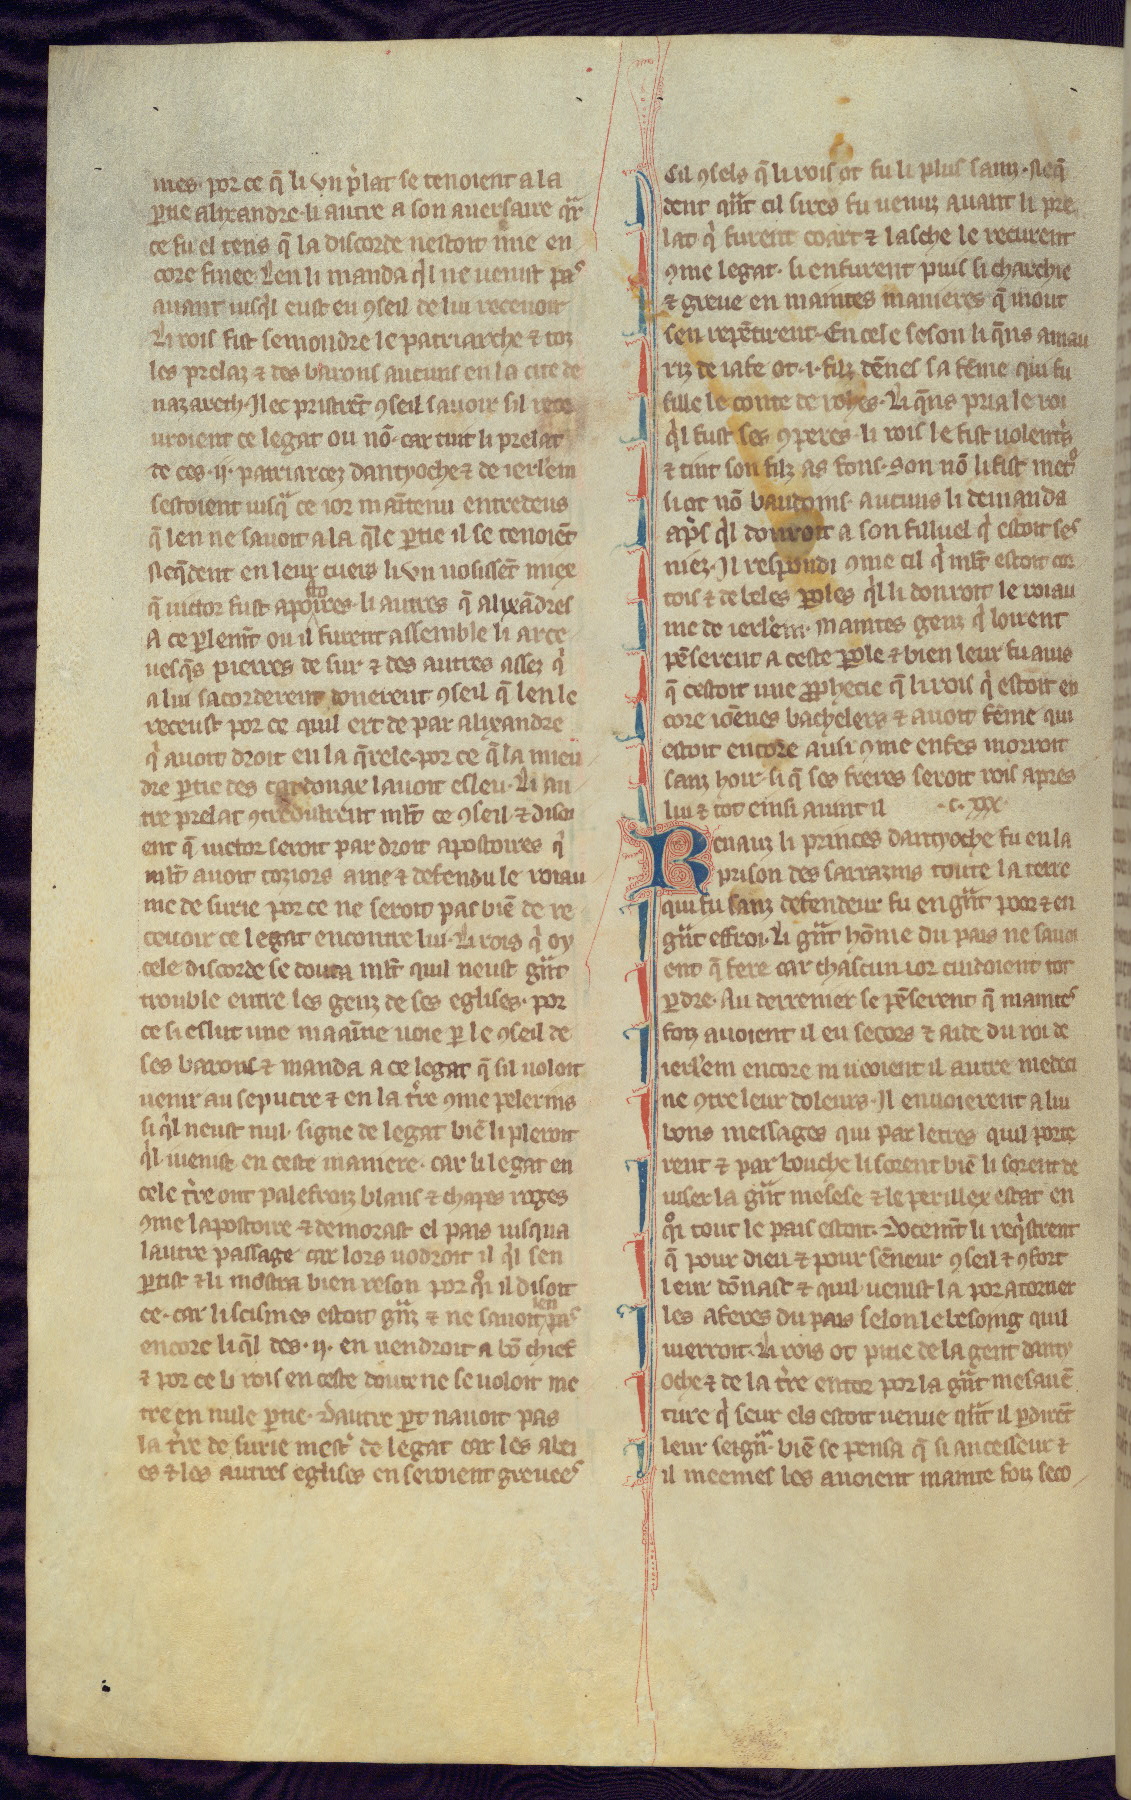 mes. por ce q̃ li vn p̃lat se tenoient a la
ꝑtie alixandre. li autre a son auersaire q̃r
ce fu el tens q̃ la discorde nestoit mie en
core finee. Len li manda q̃l ne uenist pas
auant iusq̃l eust eu ꝯseil de lui receuoir
Li rois fist semondre le patriarche ⁊ toz
les prelaz ⁊ des barons aucuns en la cite de
nazareth. Ilec pristrẽt ꝯseil sauoir sil rece
uroient ce legat ou nõ. car tuit li prelat
de ces .ij. patriarcez dantyoche ⁊ de ierl'em
sestoient iusq̃ ce ior mãtenu entredeus
q̃ len ne sauoit a la q̃le ꝑtie il se tenoiẽt
neq̃dent en leur cuers li vn uosissẽt miex
q̃ uictor fust apostoires. li autres q̃ alixãdres
A ce ꝑlem̃t ou il furent assemble li arce
uesq̃s pierres de sur ⁊ des autres assez q̃
a lui sacorderent donerent ꝯseil q̃ len le
receust por ce quil ert de par alixandre
q̃ auoit droit en la q̃rele. por ce q̃ la mieu
dre ꝑtie des cardonax lauoit esleu. Li au
tre prelat ꝯtredistrent ml't ce ꝯseil. ⁊ disoi
ent q̃ uictor seroit par droit apostoires q̃
ml't auoit toziors ame ⁊ defendu le roiau
me de surie por ce ne seroit pas biẽ de re
ceuoir ce legat encontre lui. Li rois q̃ oy
cele discorde se douta ml't quil neust g̃nt
trouble entre les genz de ses eglises. por
ce si eslut une maaine uoie ꝑ le ꝯseil de
ses barons ⁊ manda a ce legat q̃ sil uoloit
uenir au sepucre ⁊ en la t̃re ꝯme pelerins
si q̃l neust nul. signe de legat biẽ li pleroit
q̃l uenist en ceste maniere. car li legat en
cele t̃re ont palefroiz blans ⁊ chapes roges
ꝯme lapostoire ⁊ demorast el pais iusqua
lautre passage car lors uodroit il q̃l sen
ꝑtist ⁊ li mostra bien reson por q̃i il disoit
ce. car li scismes estoit g̃nz ⁊ ne sauoit len pas
encore li q̃l des .ij. en uendroit a bõ chief
⁊ por ce li rois en ceste doute ne se uoloit me
tre en nule ꝑtie. Dautre ꝑt nauoit pas
la t̃re de surie mest' de legat car les abei
es ⁊ les autres eglises en seroient greuees
Cil ꝯsels q̃ li rois ot fu li plus sainz. neq̃
dent q̃nt cil sires fu uenuz auant li pre
lat q̃ furent coart ⁊ lasche le recurent
ꝯme legat. si en furent puis si charchie
⁊ greue en maintes manieres q̃ mout
sen repẽtirent. En cele seson li q̃ns amau
riz de iafe ot .i. filz dẽnes sa fẽme qui fu
fille le conte de rohes. Li q̃ns pria le roi
q̃l fust ses ꝯperes. li rois le fist uolent̃s
⁊ tint son filz as fons. son nõ li fist met°
si ot nõ baudoins. aucuns li demanda
ap̃s q̃l donroit a son filluel q̃ estoit ses
niez. Il respondi ꝯme cil q̃ ml't estoit cor
tois ⁊ de beles ꝑoles q̃l li donroit le roiau
me de ierl'em. maintes genz q̃ loirent
pẽserent a ceste ꝑole ⁊ bien leur fu auis
q̃ cestoit une ꝓphecie q̃ li rois q̃ estoit en
core iõenes bachelers ⁊ auoit fẽme qui
estoit encore ausi ꝯme enfes morroit
sanz hoir. si q̃ ses freres seroit rois apres
lui ⁊ tot einsi auint il .c. xxx.
Renauz li princes dantyoche fu en la
prison des sarrazins toute la terre
qui fu sanz defendeur fu en g̃nt poor ⁊ en
g̃nt effroi. Li g̃nt hõme du pais ne sauoi
ent q̃ fere car chascun ior cuidoient tot
ꝑdre. Au derrenier se pẽserent q̃ maintes
foiz auoient il eu secors ⁊ aide du roi de
ierl'em encore ni ueoient il autre medeci
ne ꝯtre leur doleurs. Il enuoierent a lui
bons messages qui par letres quil porte
rent ⁊ par bouche li sorent biẽ li sorent de
uiser la g̃nt mesese ⁊ le perillex estat en
q̃i tout le pais estoit. Docem̃t li req̃strent
q̃ pour dieu ⁊ pour sẽneur ꝯseil ⁊ ꝯfort
leur dõnast ⁊ quil uenist la por atorner
les aferes du pais selon le besoing quil
uerroit. Li rois ot pitie de la gent danty
oche ⁊ de la t̃re entor por la g̃nt mesauẽ
ture q̃ seur els estoit uenue q̃nt il ꝑdirẽt
leur seign̄. biẽ se pensa q̃ si ancesseur ⁊
il meemes les auoient mainte foiz seco